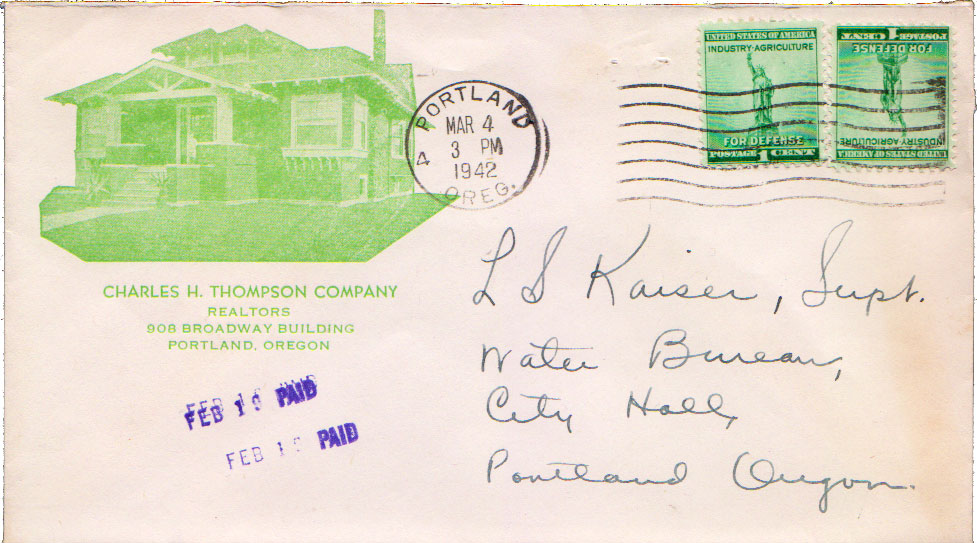 UNITED STATES OF AMERICA
INDUSTRY·AGRICULTURE
FOR DEFENSE
POSTAGE 1 CENT
UNITED STATES OF AMERICA
INDUSTRY AGRICULTURE
FOR DEFENSE
POSTAGE 1 CENT
PORTLAND
MAR 4
3 PM
1942
OREG.
4
CHARLES H. THOMPSON COMPANY
REALTORS
908 BROADWAY BUILDING
PORTLAND, OREGON
L S Kaiser, Supt.
Water Bureau,
City Hall,
Portland Oregon.
FEB 19 PAID
FEB 1 PAID